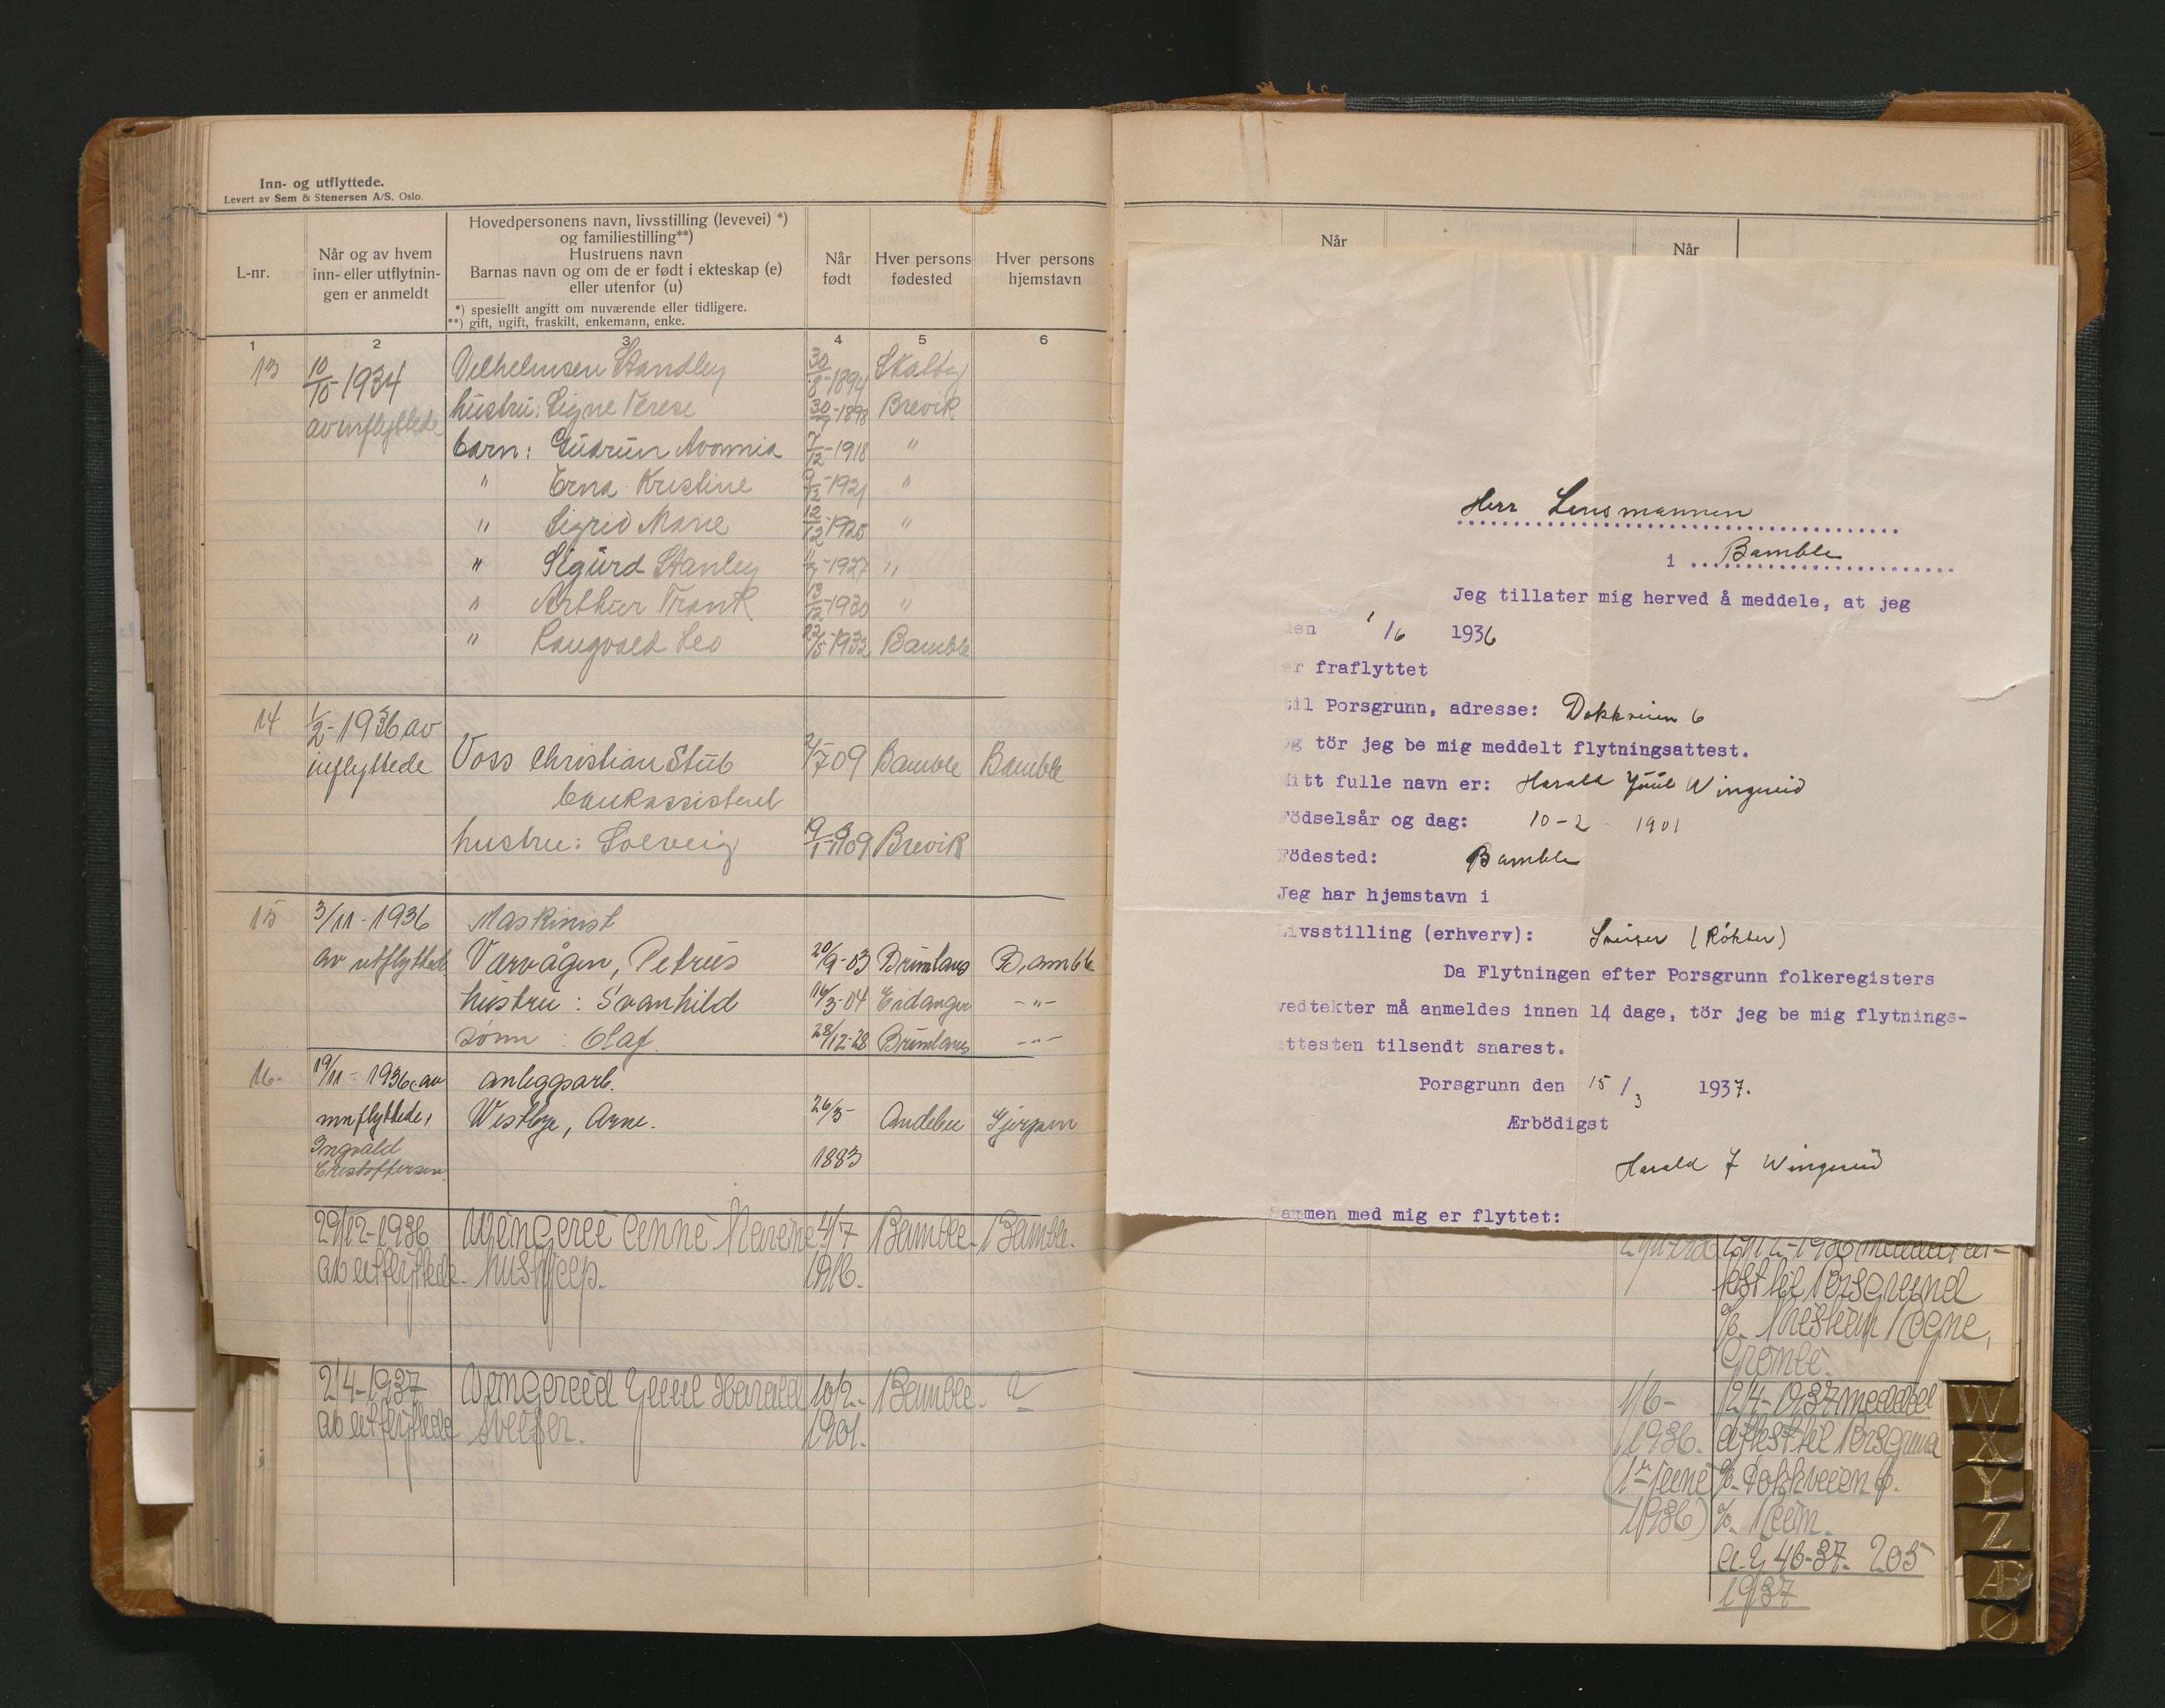 Inn- og utflyttede.
Levert av Sem & Stenersen A/S. Oslo.
L-nr.
Når og av hvem
inn- eller utflytnin-
gen er anmeldt
Hovedpersonens navn, livsstilling (levevei) *)
og familiestilling**)
Hustruens navn
Barnas navn og om de er født i ekteskap (e)
eller utenfor (u)
*) spesiellt angitt om nuværende eller tidligere.
**) gift, ugift, fraskilt, enkemann, enke.
Når
født
Hver persons
fødested
Hver persons
hjemstavn
1 2 3 4 5 6
13 10/10-1934 Vilhelmsen Standley 30/8-1894 Skatøy
av innflyttede hustru: Signe Terese 30/7-1898 Brevik
barn: Gudrun 7/12-1918 "
" Erna Kristine 9/12-1921 "
" Sigrid Marie 12/12-1925 "
" Sigurd Stanley 1927 "
" Arthur Frank 13/12-1930 "
" Rangvald Leo 22/5-1932 Bamble
14 1/2-1936 av
innflyttede Voss Christian Stub 2/7 09 Bamble Bamble
bankassistent
hustru: Solveig 19/1-1909 Brevik
15 3/11-1936 Maskinist
av utflyttede Varvågen, Petrus 20/9-03 Brunlanes Bamble
hustru: Svanhild 16/3-04 Eidanger -"-
sønn: Olaf. 28/12-28 Brunlanes -"-
16. 19/11-1936 av anleggsarb.
innflyttede, Westbye, Arne. 26/3- Andebu Gjerpen
Ingvald
Cristoffersen. 1883
29/12-1936 Wingerei Nanna 4/7 Bamble. Bamble.
av utflyttede. hushjelp. 1916.
2/4-1937 Wingereid Juul Harald 10/2- Bamble. ?
av utflyttede sveiser. 1901.
Når
Når
Herr Lensmannen
i Bamble
Jeg tillater mig herved å meddele, at jeg
den 1/6 1936
er fraflyttet
til Porsgrunn, adresse: Dokkveien 6
og tör jeg be mig meddelt flytningsattest.
Mitt fulle navn er: Harald Juul Wingereid
Födselsår og dag: 10-2 1901
Födested: Bamble
Jeg har hjemstavn i
Livsstilling (erhverv): Sveiser (Røkter)
Da Flytningen efter Porsgrunn folkeregisters
vedtekter må anmeldes innen 14 dage, tör jeg be mig flytnings-
attesten tilsendt snarest.
Porsgrunn den 15/3 1937.
Ærbödigst
Harald J Wingereid
Sammen med mig er flyttet:
29/12-1936 meddelt at-
test til Porsgrund
%. Kristian Rogne,
1/6- 12/4-1937 meddel
1936. attest til Porsgrund
(1ste juni %. Dokkveien 6.
1936) %. Reim.
46-37- 205
1937
W
X
Y
Z
Æ
Ø